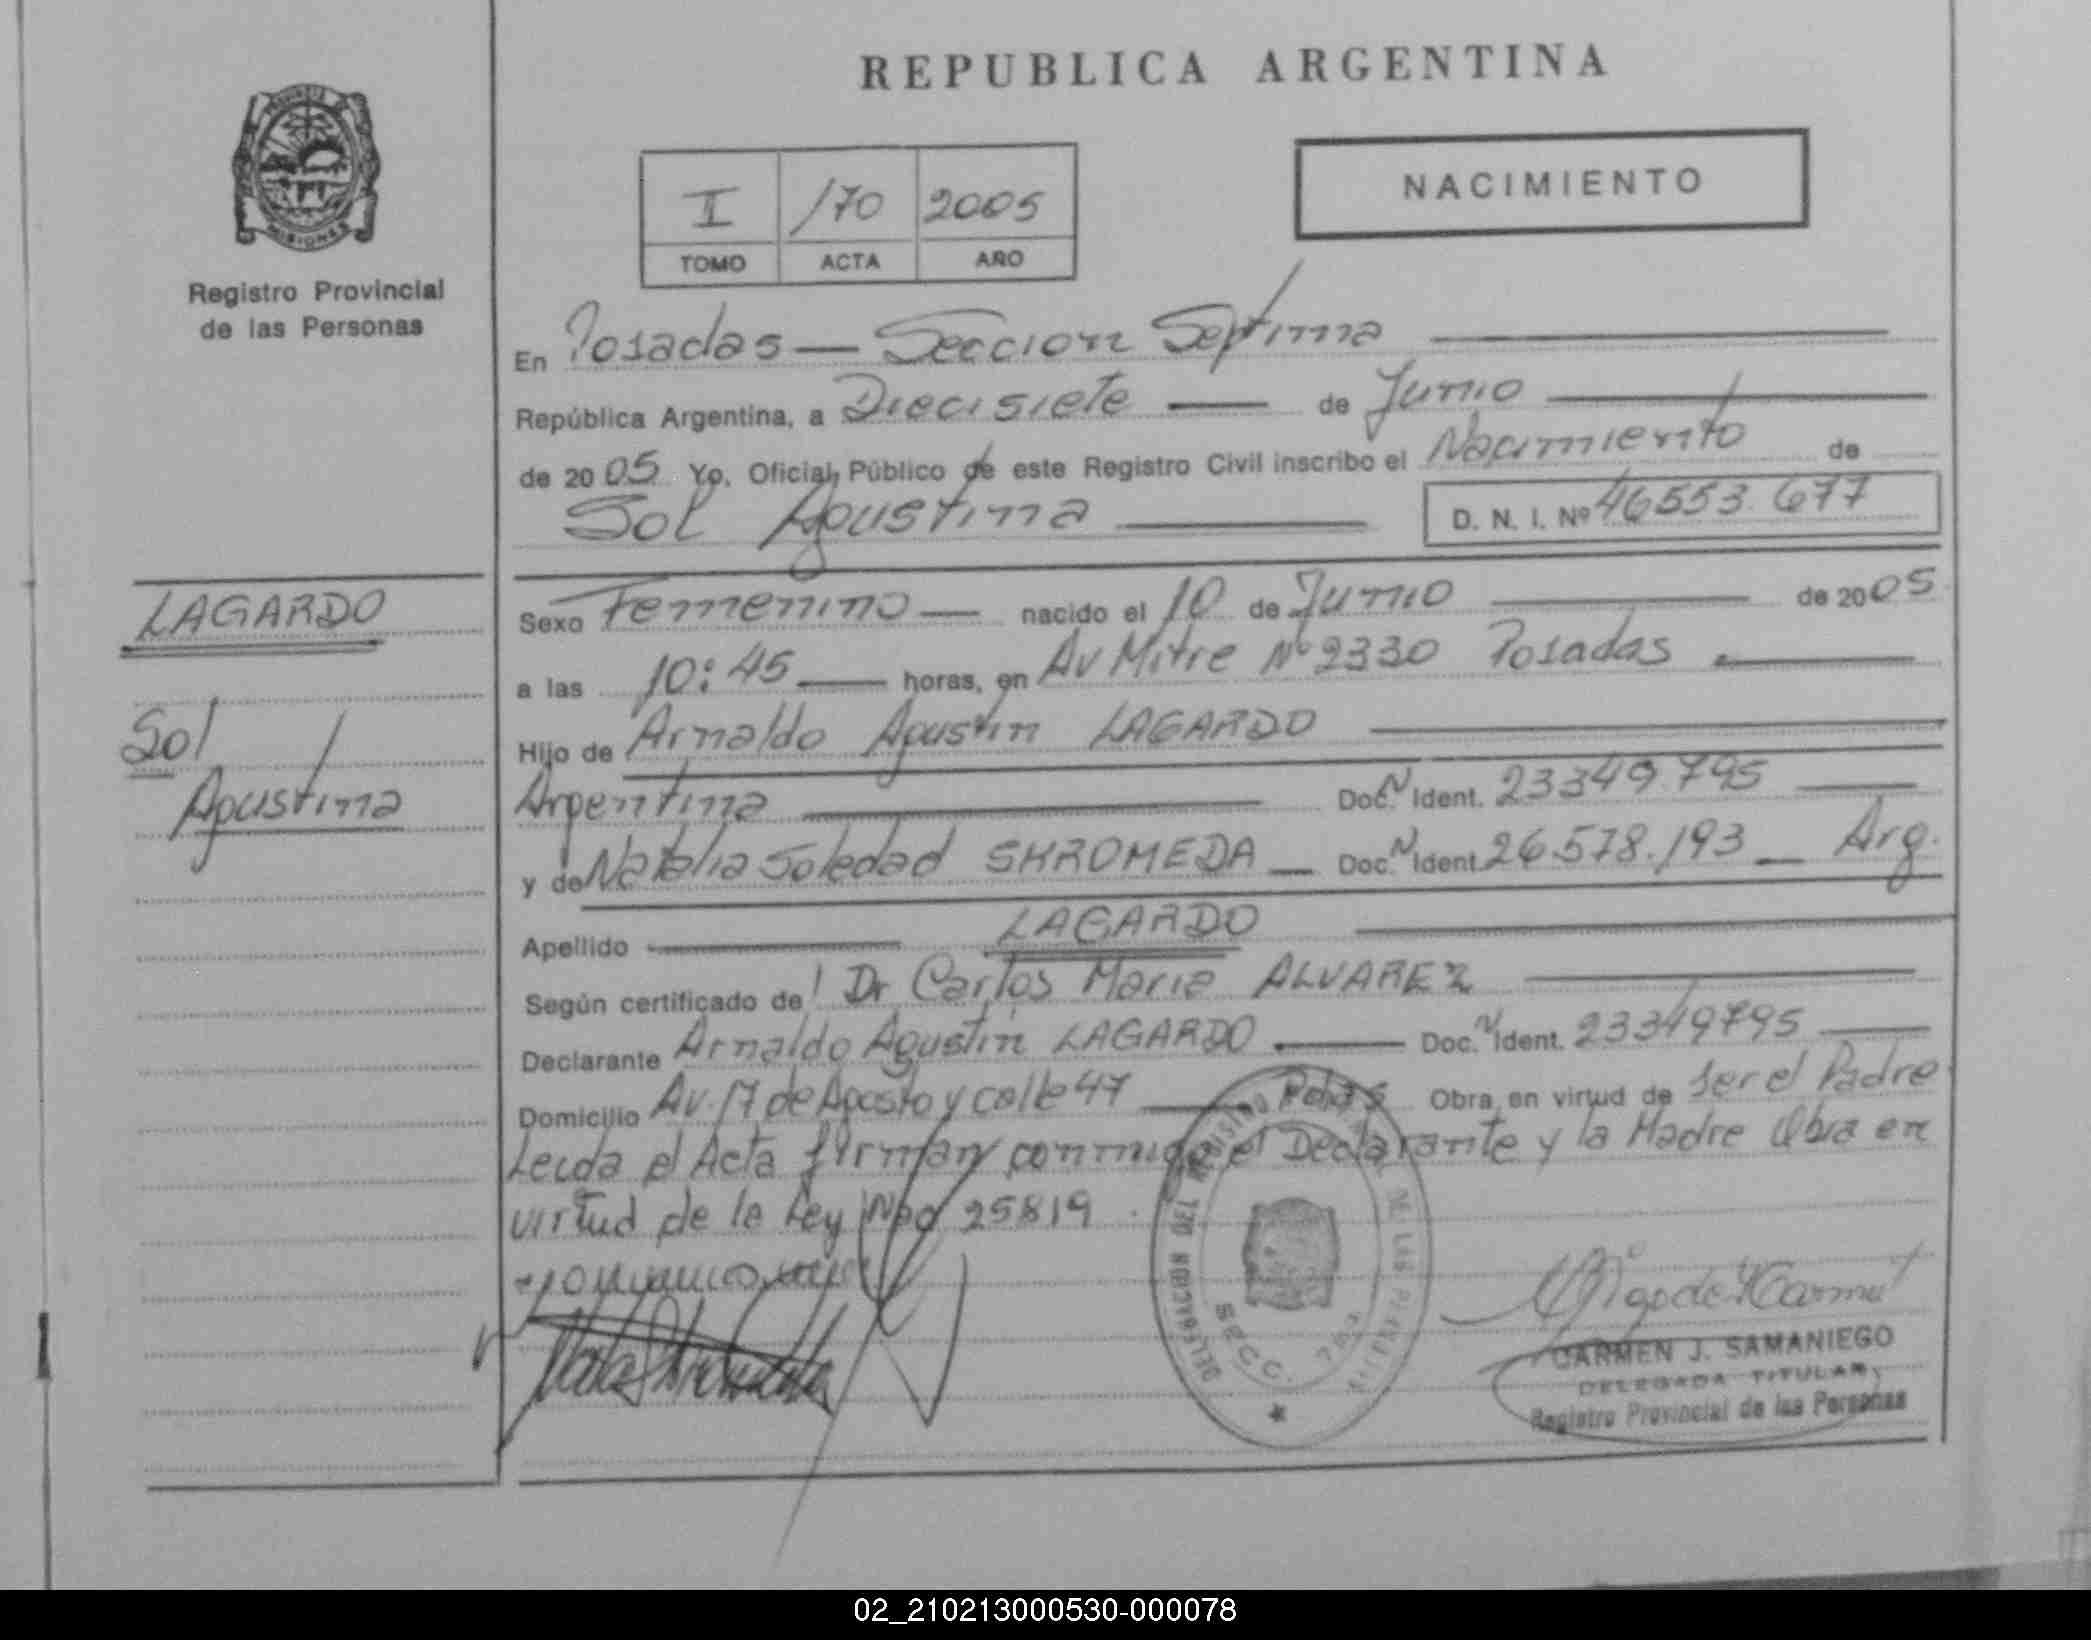 REPUBLICA ARGENTINA
PROVINCIA DE
MISIONES
Registro Provincial
de las Personas
I /70 2005
TOMO ACTA AÑO
NACIMIENTO
En Posadas — Seccion Septima
República Argentina, a Diecisiete — de Junio
de 2005 Yo, Oficial Público de este Registro Civil inscribo el Nacimiento de
Sol Agustina
D. N. I. Nº 46553.677
LAGARDO
Sol
Agustina
Sexo Femenino — nacido el 10 de Junio de 2005
a las 10:45 — horas, en Av Mitre Nº 2330 Posadas
Hijo de Arnaldo Agustin LAGARDO
Argentina Doc. N Ident. 23349.795
y de Natalia Soledad SKROMEDA — Doc. N Ident. 26.578.193 — Arg.
Apellido LAGARDO
Según certificado de Dr Carlos Marie ALVAREZ
Declarante Arnaldo Agustin LAGARDO — Doc. N Ident. 23349795
Domicilio Av. 17 de Agosto y calle 47 — Pdas Obra en virtud de ser el Padre
Leida el Acta firman conmigo el Declarante y la Madre Obra en
virtud de la Ley Nro 25819
DELEGACION DEL REGISTRO PROVINCIAL DE LAS PERSONAS
SECC. 7ma
CARMEN J. SAMANIEGO
DELEGADA TITULAR
Registro Provincial de las Personas
02_210213000530-000078